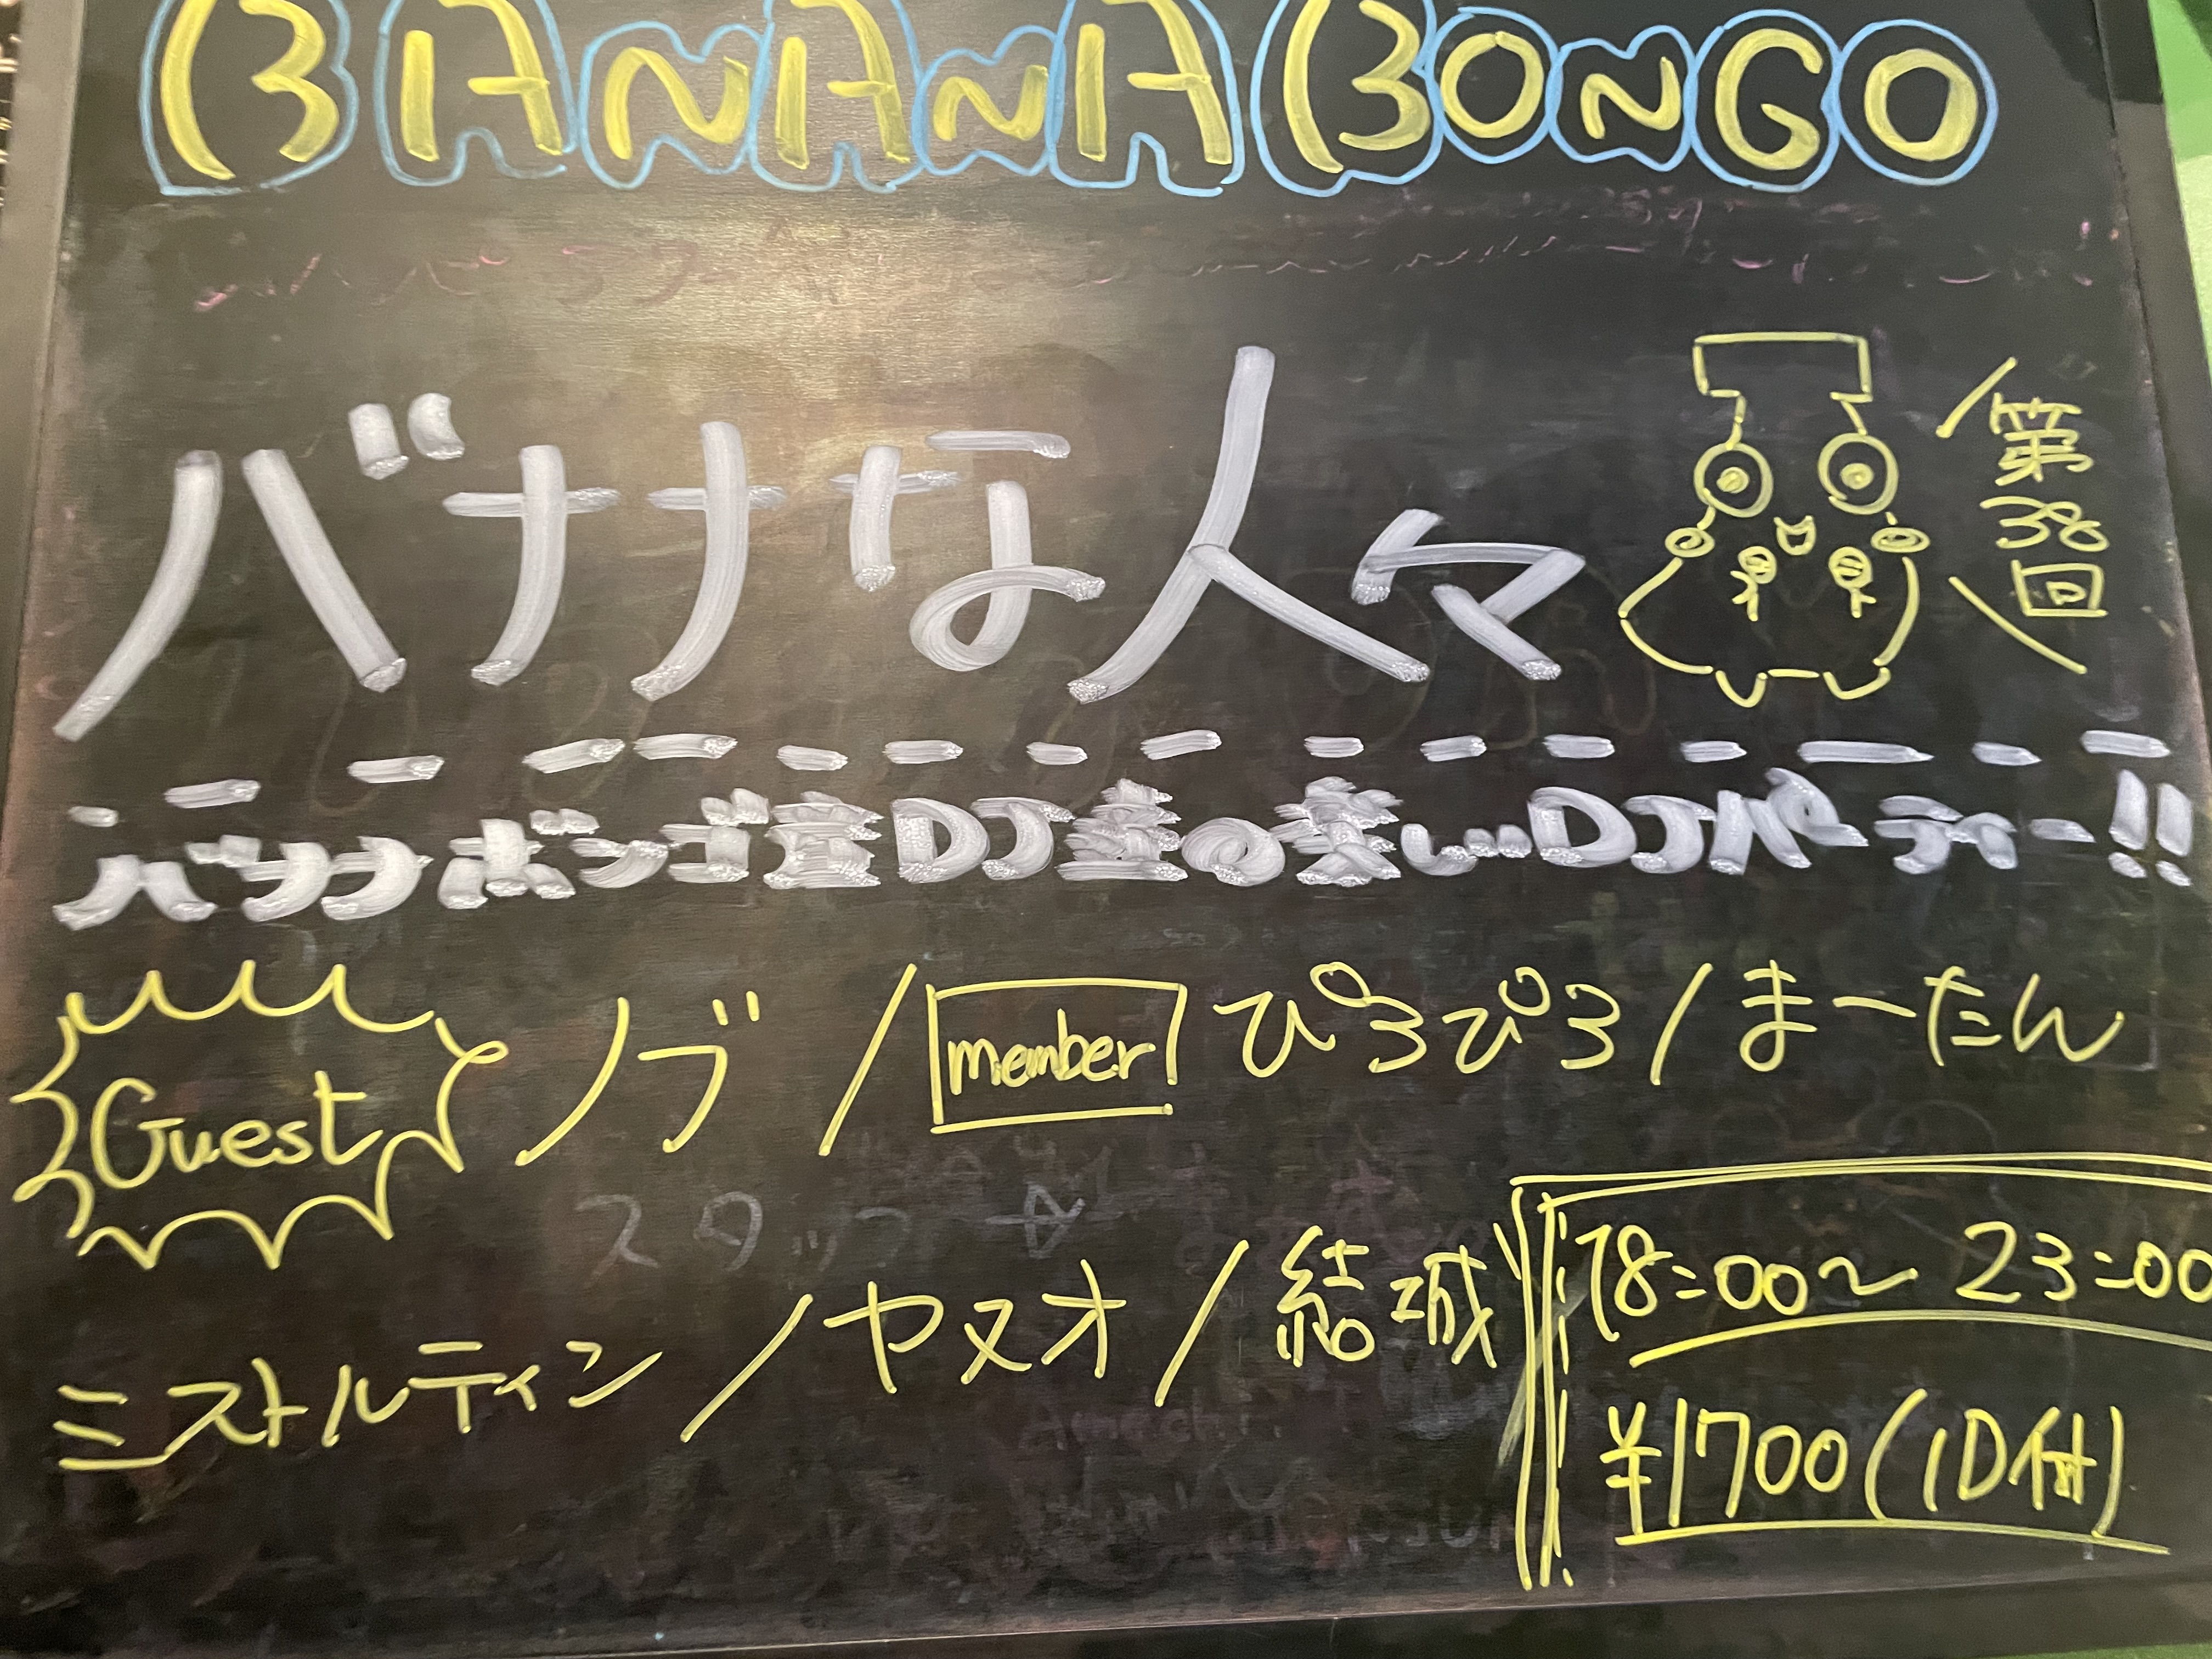 BANANA BONGO
バナナな人々
第38回
バナナボンゴ産DJ達の楽しいDJパーティー!!
Guest ノブ / member ぴろぴろ / まーたん
ミストルティン / ヤヌオ / 結城
18:00～23:00
¥1700(1D付)